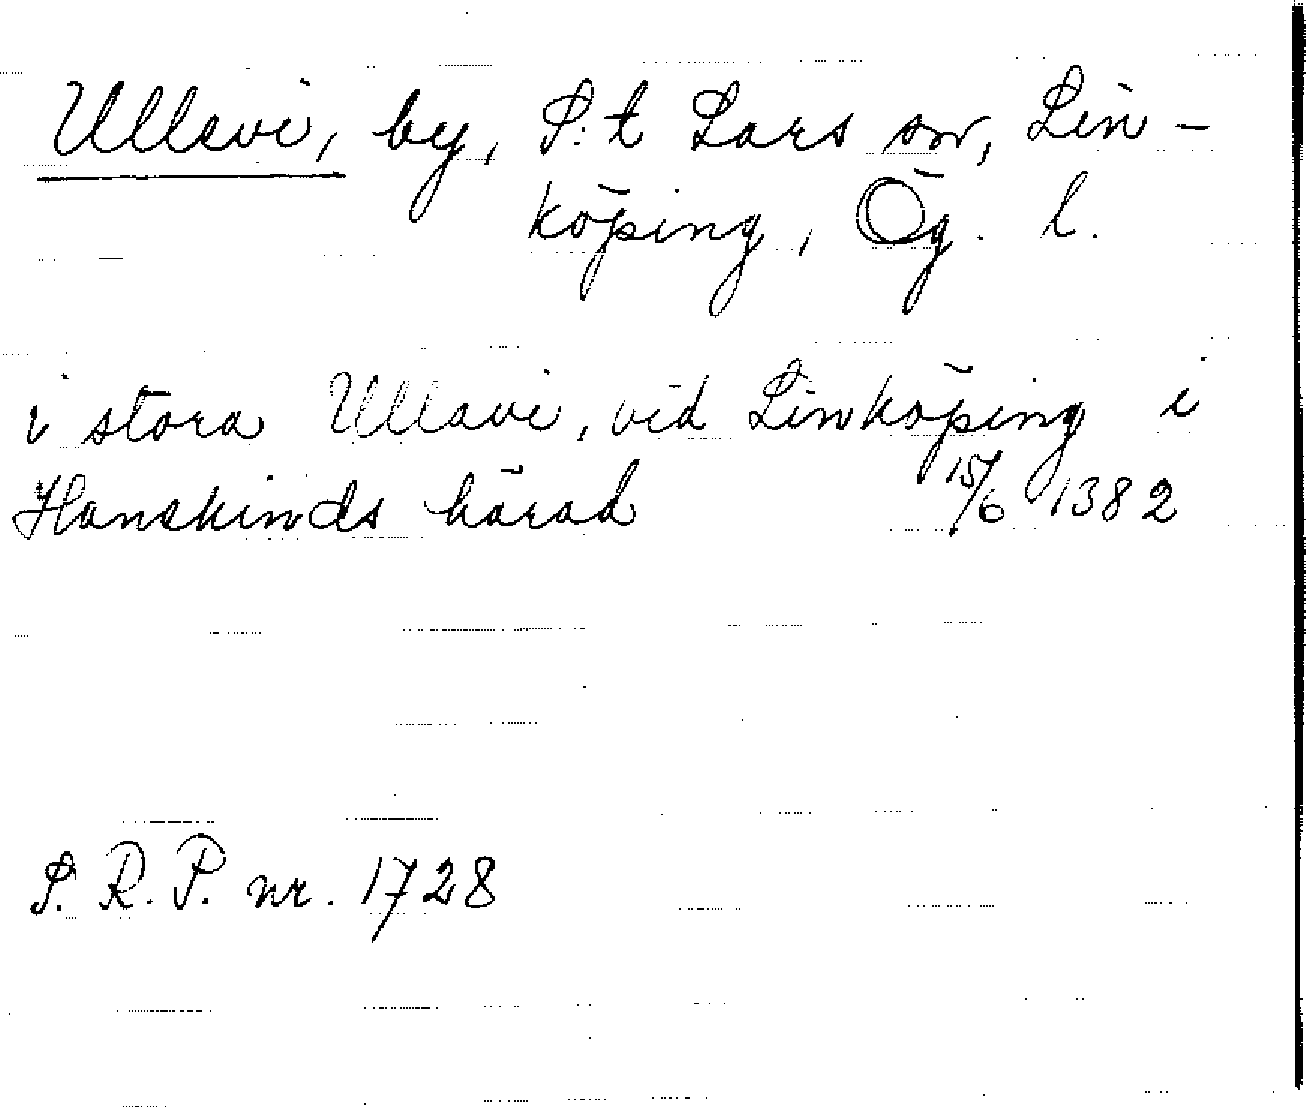 Ullevi, by, S:t Lars sn, Lin-
köping, Ög. l.
i stora Ullavi, vid Linköping i
Hanekinds härad 15/6 1382
S.R.P. nr. 1728